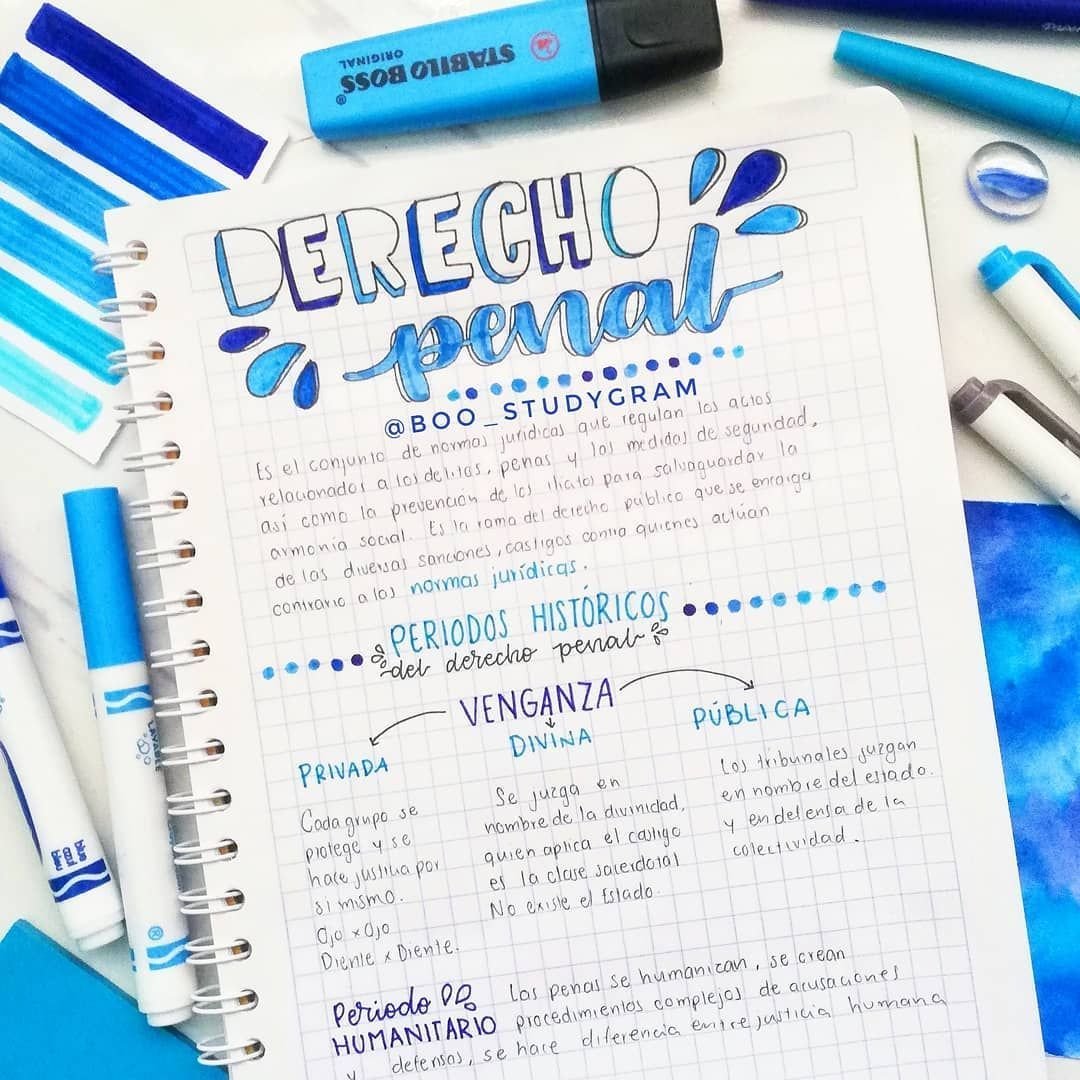 STABILO BOSS
ORIGINAL
DERECHO
penal
@BOO_STUDYGRAM
Es el conjunto de normas jurídicas que regulan los actos
relacionados a los delitos, penas y las medidas de seguridad,
así como la prevención de los ilícitos para salvaguardar la
armonía social. Es la rama del derecho público que se encarga
de las diversas sanciones, castigos contra quienes actúan
contrario a las normas jurídicas.
PERIODOS HISTÓRICOS
del derecho penal
VENGANZA
PRIVADA
Cada grupo se
protege y se
hace justicia por
si mismo.
Ojo x Ojo
Diente x Diente.
DIVINA
Se juzga en
nombre de la divinidad,
quien aplica el castigo
es la clase sacerdotal
No existe el Estado.
PÚBLICA
Los tribunales juzgan
en nombre del estado.
y en defensa de la
colectividad.
Periodo
HUMANITARIO
Las penas se humanizan, se crean
procedimientos complejos de acusaciones
y defensas, se hace diferencia entre justicia humana
blue
azul
bleu